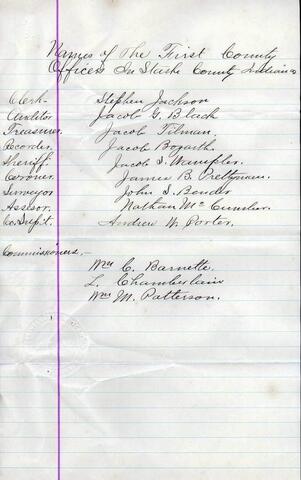 Names of The First County
Officers In Starke County Indiana
Clerk- Stephen Jackson
Auditor Jacob G. Black
Treasurer. Jacob Tilman.
Recorder. Jacob Bogarth
Sheriff. Jacob S. Wampler.
Coroner. James B. Prettyman.
Surveyor John S. Bender
Assesor. Nathan McCumber.
Co. Supt. Andrew W. Porter.
Commissioners,-
Wm C. Barnette.
L. Chamberlain
Wm M. Patterson.